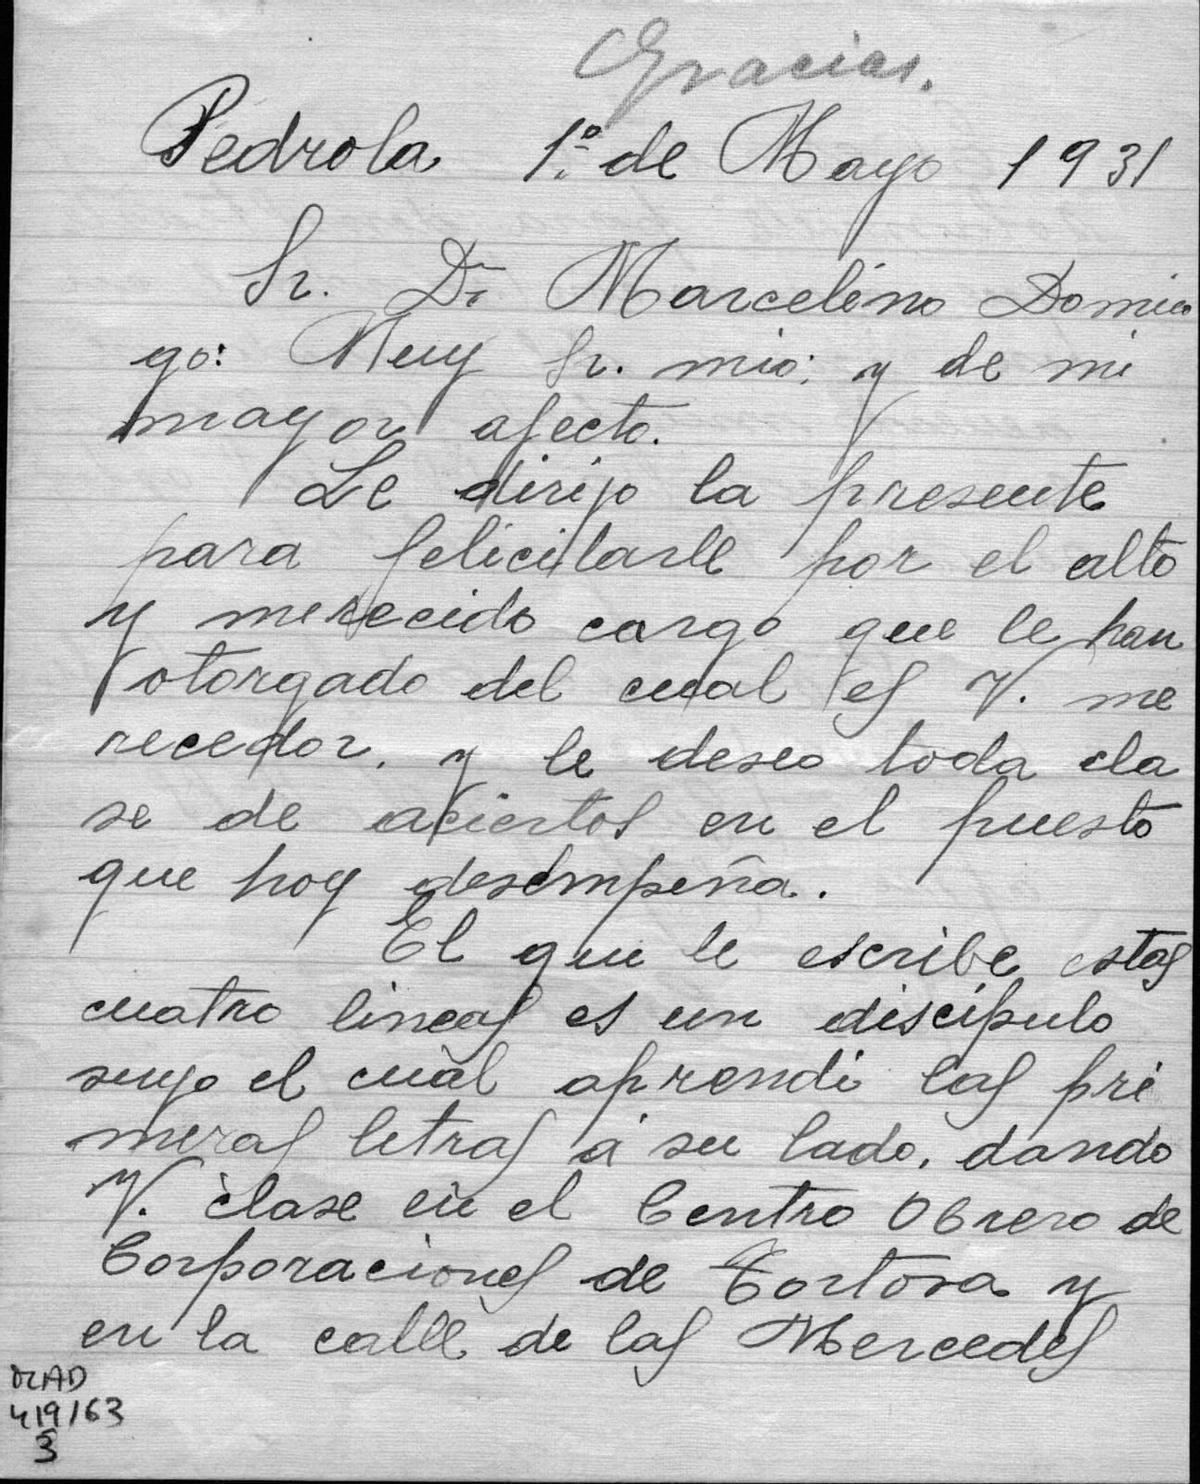 Gracias.
Pedrola 1º de Mayo 1931
Sr. Dn Marcelino Domin
go: Muy Sr. mio: y de mi
mayor afecto.
Le dirijo la presente
para felicitarle por el alto
y merecido cargo que le han
otorgado del cual es V. me
recedor, y le deseo toda cla
se de aciertos en el puesto
que hoy desempeña.
El que le escribe estas
cuatro lineas es un discípulo
suyo el cuàl aprendi las pri
meras letras á su lado, dando
V. clase en el Centro Obrero de
Corporaciones de Tortosa y
en la calle de las Mercedes
419/63
3